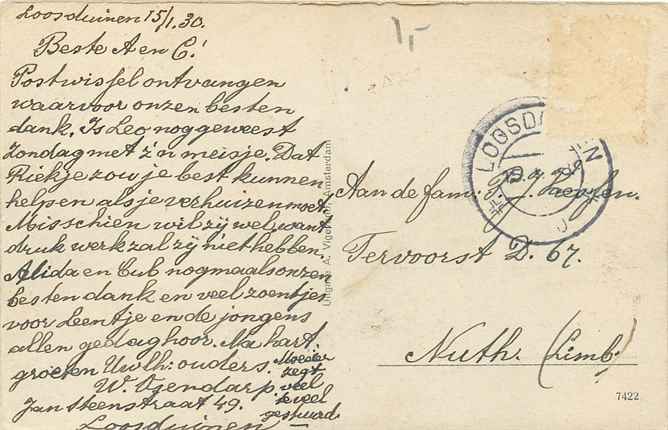 Loosduinen 15/1.30.
Beste A en C!
Postwissel ontvangen
waarvoor onzen besten
dank. Is Leo nog geweest
Zondag met z'n meisje. Dat
Riekje zou je best kunnen
helpen als je verhuizen moet.
Misschien wil zij wel, want
druk werk zal zij niet hebben.
Alida en Cub nogmaals onzen
besten dank en veel zoentjes
voor Leentje en de jongens
allen gedag hoor. Na hart.
groeten Uw lh: ouders.
W. Osendarp.
Jan Steenstraat 49.
Loosduinen –
Moeder
zegt
veel
te veel
gestuurd
1,-
Uitgave A. Amsterdam
LOOSDUINEN
Aan de fam:
Tervoorst D. 67.
Nuth. (Limb)
7422